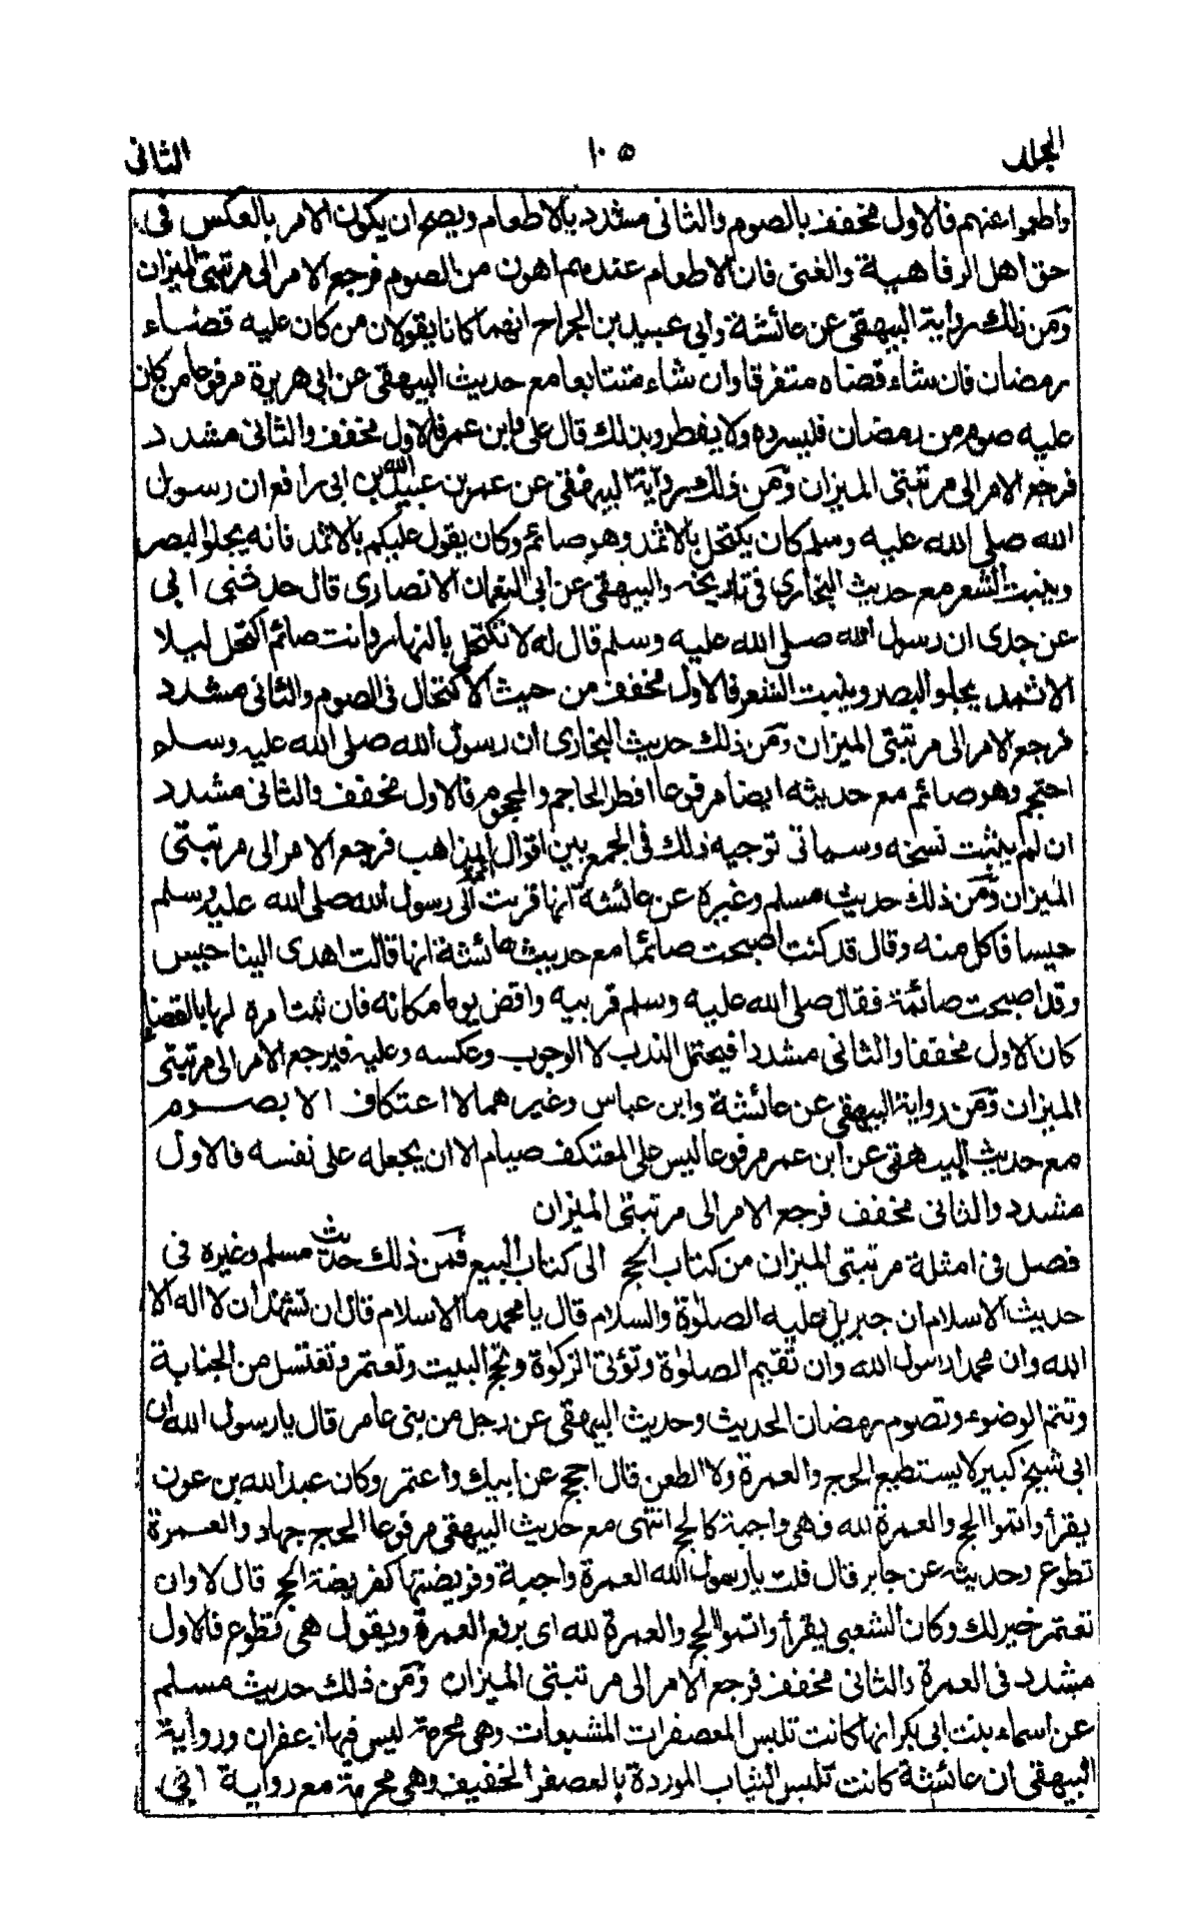 المجلد ١٠٥ الثانى
واطعموا عنهم فالاول مخفف بالصوم والثانى مشدد بالاطعام ويصح ان يكون الامر بالعكس فى
حق اهل الرفاهية والغنى فان الاطعام عندهم اهون من الصوم فرجع الامر الى مرتبتى الميزان
ومن ذلك رواية البيهقى عن عائشة وابي عبيد بن الجراح انهما كانا يقولان من كان عليه قضاء
رمضان فان شاء قضاه متفرقا وان شاء متتابعا مع حديث البيهقى عن ابى هريرة مرفوعا من كان
عليه صوم من رمضان فليسرده ولا يفطر وبذلك قال على وابن عمر فالاول مخفف والثانى مشدد
فرجع الامر الى مرتبتى الميزان ومن ذلك رواية البيهقى عن عمر بن عبيد الله بن ابى رافع ان رسول
الله صلى الله عليه وسلم كان يكتحل بالاثمد وهو صائم وكان يقول عليكم بالاثمد فانه يجلو البصر
وينبت الشعر مع حديث البخارى فى تاريخه والبيهقى عن ابى النعمان الانصارى قال حدثنى ابى
عن جدى ان رسول الله صلى الله عليه وسلم قال له لا تكتحل بالنهار وانت صائم اكتحل ليلا
الاثمد يجلو البصر وينبت الشعر فالاول مخفف من حيث الاكتحال فى الصوم والثانى مشدد
فرجع الامر الى مرتبتى الميزان ومن ذلك حديث البخارى ان رسول الله صلى الله عليه وسلم
احتجم وهو صائم مع حديثه ايضا مرفوعا افطر الحاجم والمحجوم فالاول مخفف والثانى مشدد
ان لم يثبت نسخه وسياتى توجيه ذلك فى الجمع بين اقوال المذاهب فرجع الامر الى مرتبتى
الميزان ومن ذلك حديث مسلم وغيره عن عائشة انها قربت الى رسول الله صلى الله عليه وسلم
حيسا فاكل منه وقال قد كنت اصبحت صائما مع حديث عائشة انها قالت اهدى الينا حيس
وقد اصبحت صائمة فقال صلى الله عليه وسلم قربيه واقض يوما مكانه فان ثبت امره لها بالقضاء
كان الاول مخففا والثانى مشددا فيحتمل الندب لا الوجوب وعكسه وعليه فيرجع الامر الى مرتبتى
الميزان ومن رواية البيهقى عن عائشة وابن عباس وغيرهما لا اعتكاف الا بصوم
مع حديث البيهقى عن ابن عمر مرفوعا ليس على المعتكف صيام الا ان يجعله على نفسه فالاول
مشدد والثانى مخفف فرجع الامر الى مرتبتى الميزان
فصل فى امثلة مرتبتى الميزان من كتاب الحج الى كتاب البيع فمن ذلك حديث مسلم وغيره فى
حديث الاسلام ان جبريل عليه الصلوة والسلام قال يا محمد ما الاسلام قال ان تشهد ان لا اله الا
الله وان محمدا رسول الله وان تقيم الصلوة وتؤتى الزكوة وتحج البيت وتعتمر وتغتسل من الجنابة
وتتم الوضوء وتصوم رمضان الحديث وحديث البيهقى عن رجل من بنى عامر قال يا رسول الله ان
ابى شيخ كبير لا يستطيع الحج والعمرة ولا الطعن قال احجج عن ابيك واعتمر وكان عبد الله بن عون
يقرأ واتموا الحج والعمرة لله وهى واجبة كالحج انتهى مع حديث البيهقى مرفوعا الحج جهاد والعمرة
تطوع وحديثه عن جابر قال قلت يا رسول الله العمرة واجبة وفريضتها كفريضة الحج قال لا وان
تعتمر خير لك وكان الشعبى يقرأ واتموا الحج والعمرة لله اى برفع العمرة ويقول هى تطوع فالاول
مشدد فى العمرة والثانى مخفف فرجع الامر الى مرتبتى الميزان ومن ذلك حديث مسلم
عن اسماء بنت ابى بكر انها كانت تلبس المعصفرات المشبعات وهى محرمة ليس فيها زعفران ورواية
البيهقى ان عائشة كانت تلبس الثياب الموردة بالعصفر الخفيف وهى محرمة مع رواية ابى